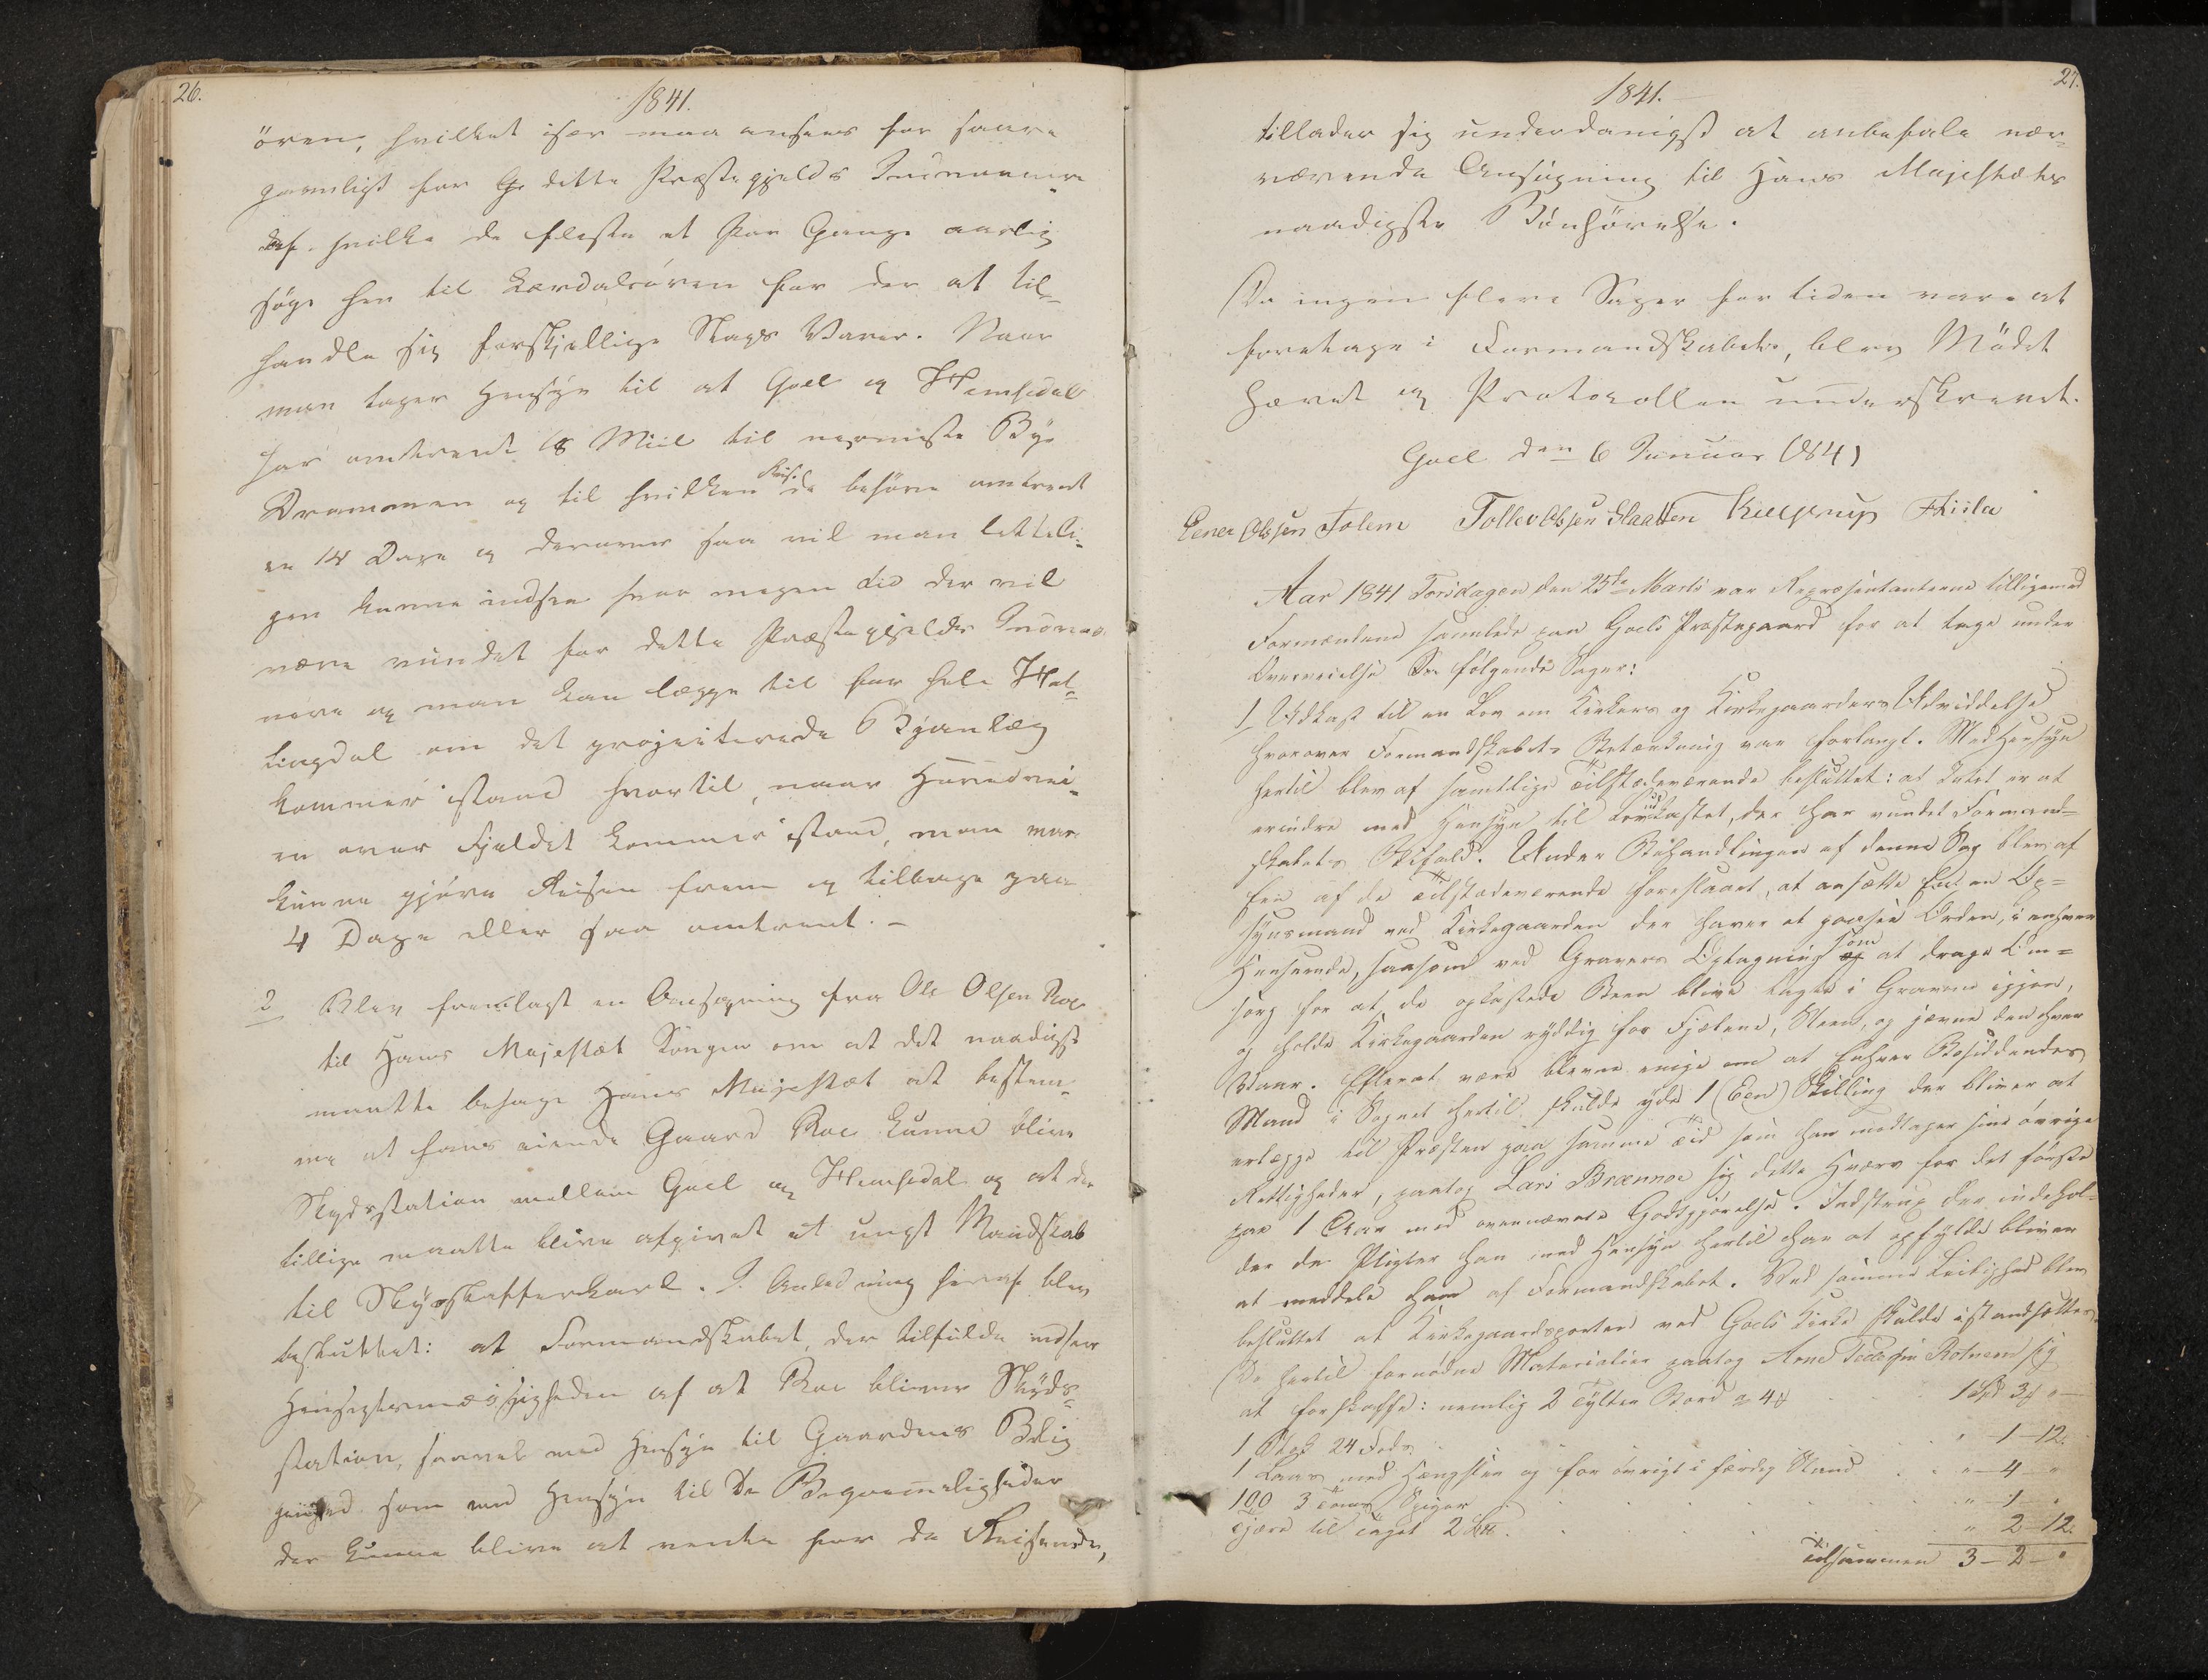 26.
1841.
ören, hvilket især maa ansees for saare
gavnligt for dette Præstegjelds Indvaanere
hvilke de fleste et Par Gange aarlig
søge hen til Lærdalsören for der at til-
handle sig forskjellige Slags Varer. Naar
man tager Hensyn til at Goel og Hemsedal
har omtrent 18 Miil til nærmeste Bye
Drammen og til hvilken Reise de behöve omtrent
en 14 Dage og derover saa vil man letteli-
gen kunne indsee hvor megen Tid der vil
være vundet for dette Præstegjelds Indvaa-
nere og man kan lægge til for hele Hal-
lingdal om det projecterede Byanlæg
kommer istand hvortil, naar Hovedvei-
en over Fjeldet kommer istand, man maa
kunne gjöre Reisen frem og tilbage paa
4 Dage eller saa omtrent. -
2 Blev fremlagt en Ansøgning fra Ole Olsen Roe
til Hans Majestæt Kongen om at det naadigst
maatte behage Hans Majestæt at bestem-
me at hans eiende Gaard Roe kunne blive
Skydsstation mellem Goel og Hemsedal og at der
tillige maatte blive afgivet et ungt Mandskab
til Skydsskafferkarl. I Anledning heraf blev
besluttet: at Formandskabet, der tilfulde indseer
Hensigtsmæssigheden af at Roe bliver Skyds-
station, saavel med Hensyn til Gaardens Belig
genhed som med Hensyn til De Beqvemmeligheder
der kunne blive at vente for de Reisende,
27.
1841.
tillader sig underdanigst at anbefale nær-
værende Ansögning til Hans Majestæts
naadigste Bönhörelse.
Da ingen flere Sager for tiden vare at
foretage i Formandskabet, blev Mödet
hævet og Protocollen underskrevet.
Goel den 6 Januar 1841
Eener Olssen Golem Tollev Olssen Slaatten
Aar 1841 Torsdagen den 25de Marts var Repræsentanterne tilligemed
Formændene samlede paa Goels Præstegaard for at tage under
Overveielse De følgende Sager:
1 Udkast til en Lov om Kirkers og Kirkegaarders Udviddelse
hvorover Formandskabets Betænkning var forlangt. Med Hensyn
hertil blev af samtlige Tilstædeværende besluttet: at Intet er at
erindre med Hensyn til Lovudkastet, der har vundet Formand-
skabets Bifald. Under Behandlingen af denne Sag blev af
Een af de Tilstædeværende foreslaaet, at ansætte en Op-
synsmand ved Kirkegaarden der haver at paasee Orden, i enhver
Henseende, saasom ved Gravers Optagning som at drage Om-
sorg for at de opkastede Been blive lagte i Graven igjen,
og holde Kirkegaarden ryddig for Fjælene, Steen, og jævne den hver
Vaar. Efterat være blevne enige om at Enhver Besiddendes
Mand i Sognet hertil skulde yde 1 (Een) Skilling der bliver at
erlægge til Præsten paa samme Tid som han modtager sine övrige
Rettigheder, paatog Lars Brænnoe sig dette Hværv for det förste
paa 1 Aar med ovennævnte Godtgjörelse. Indstrux der indehol-
der de Pligter han med Hensyn hertil har at opfylde bliver
at meddele ham af Formandskabet. Ved samme Leilighed blev
besluttet at Kirkegaardsporten ved Goels Kirke skulde istandsættes.
De hertil fornødne Materialier paatog Arne Rotneim sig
at forskaffe: nemlig 2 Tylter Bord a 4 . . . 1 Spd 3 "
1 Stok 24 Fods . . . " 1 - 12.
1 Laas med Hængsler og for övrigt i færdig Stand . . " - 4 - "
100 3 Toms Spiger . . . " - 1 - "
Tjære til Taget 2 . . . " 2 - 12.
Tilsammen 3 - 2 - "